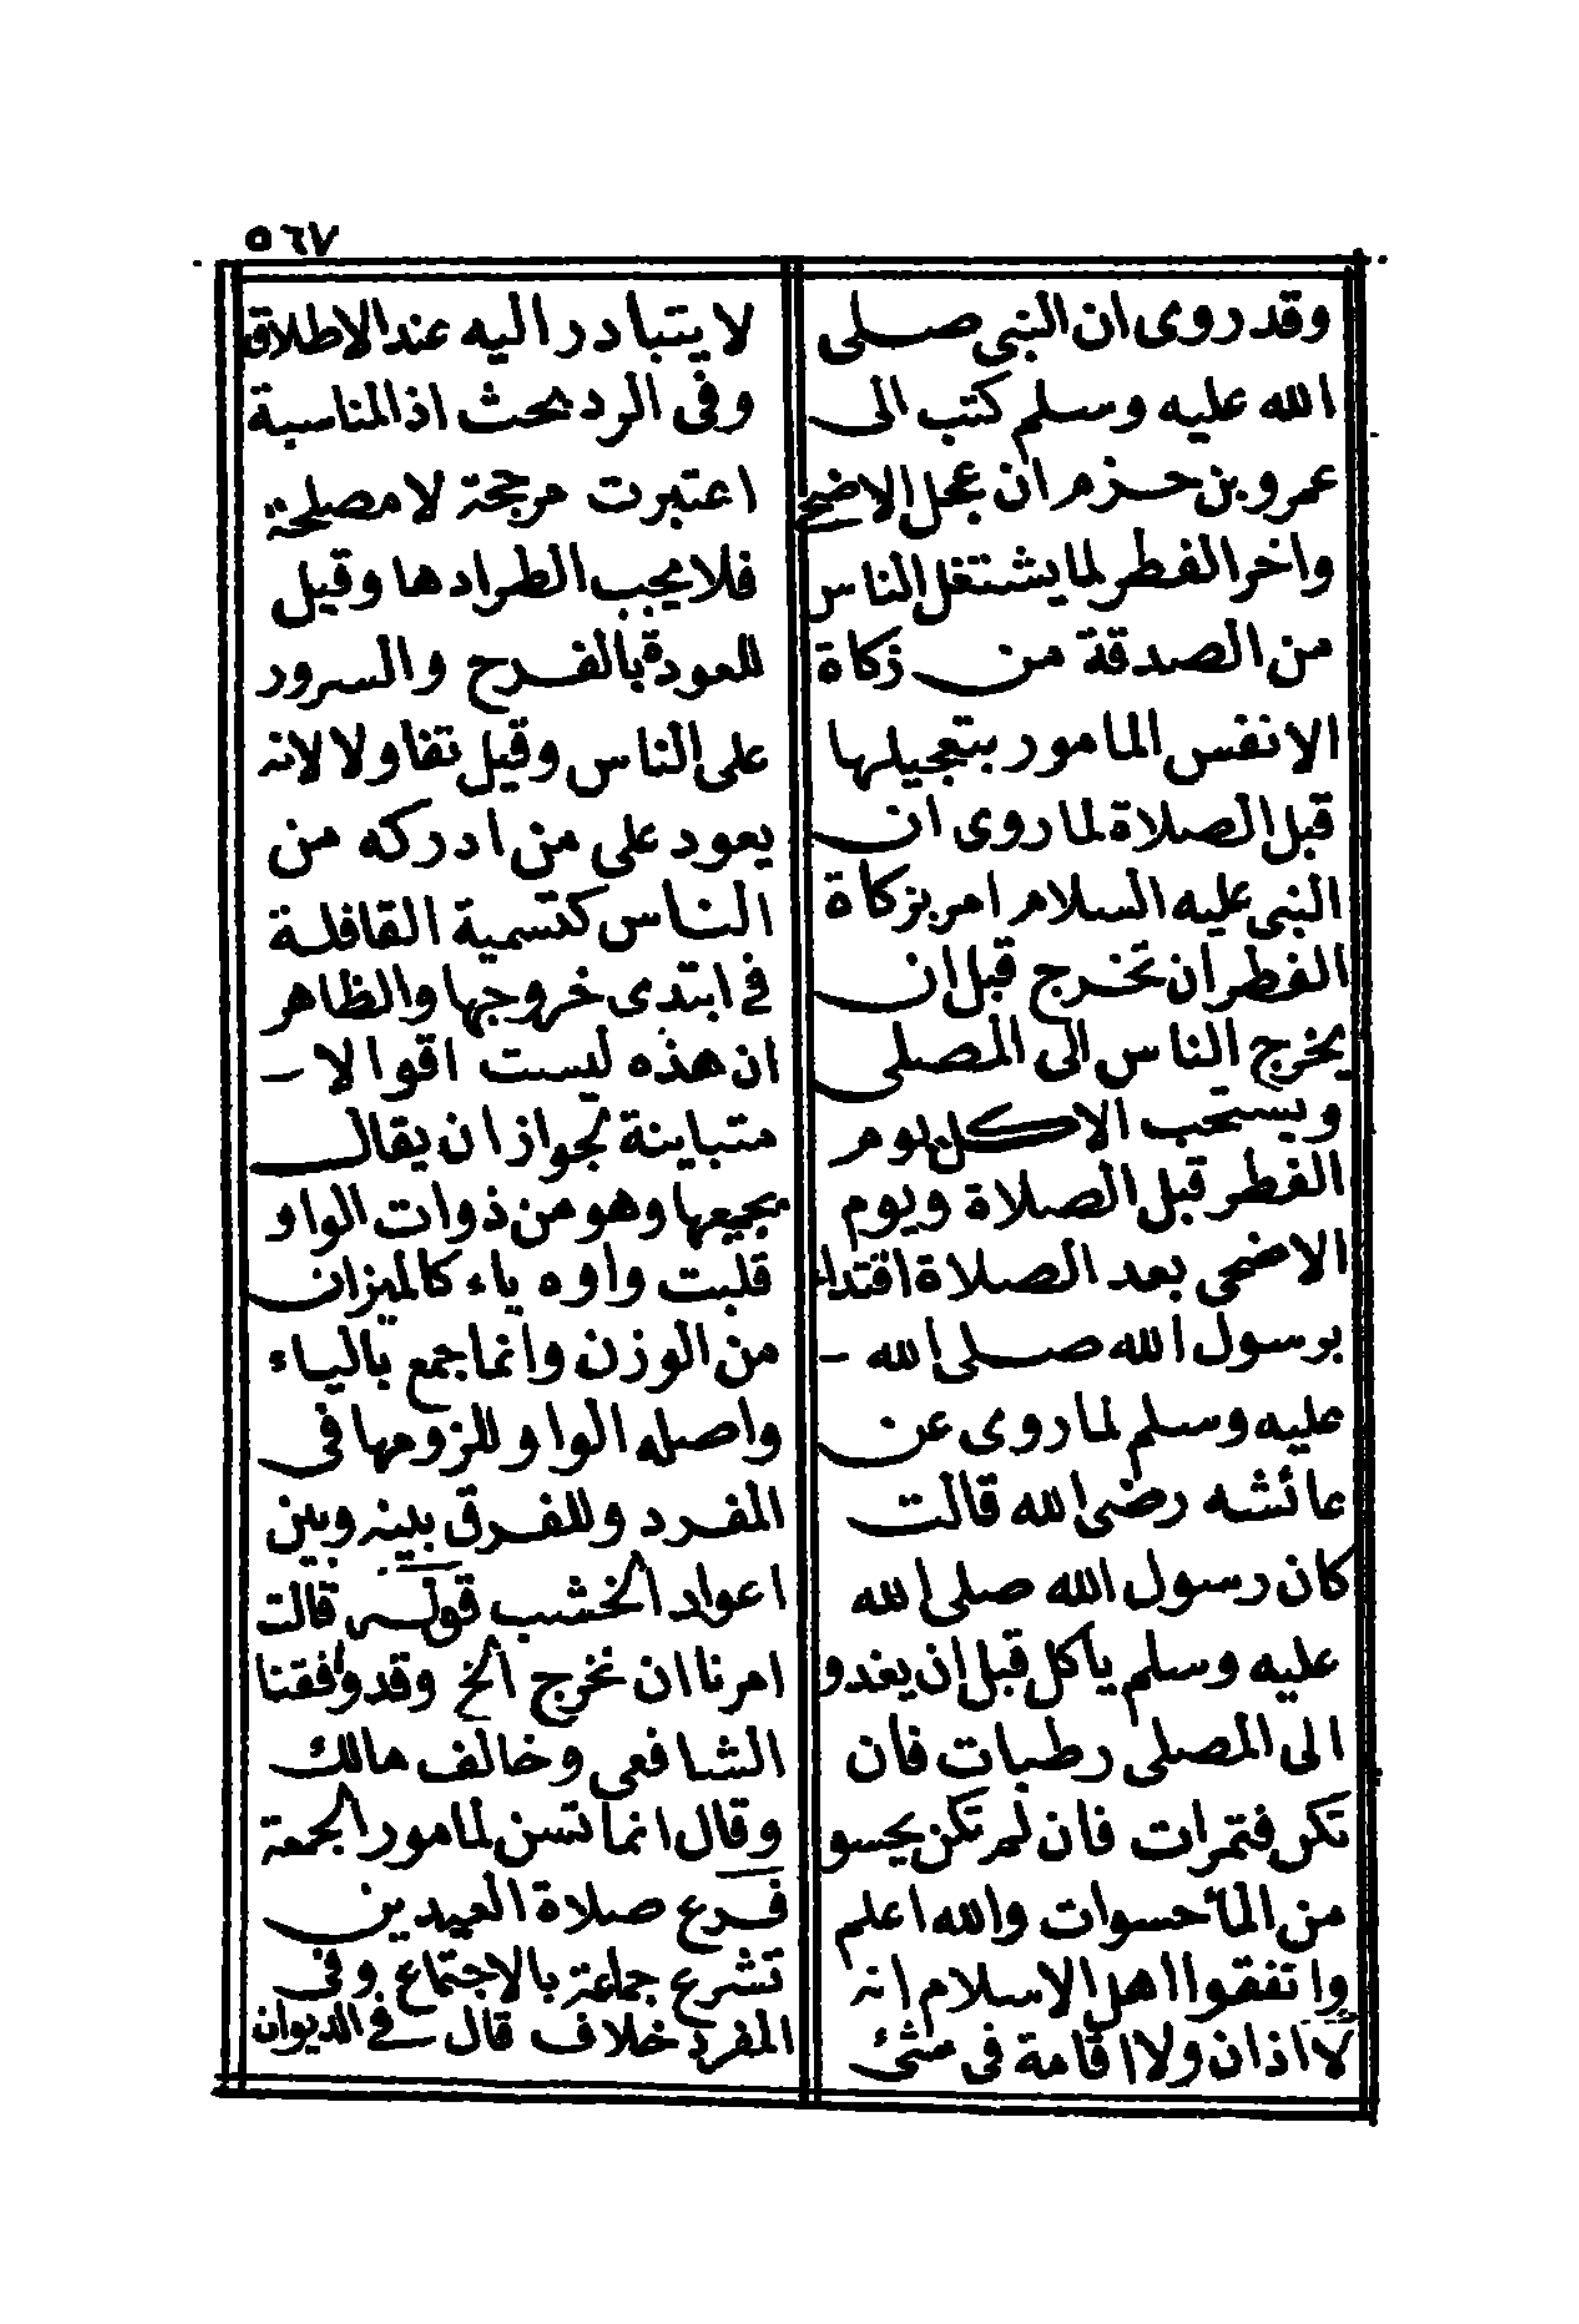 ٥٦٧
وقد روى ان النبى صلى
الله عليه وسلم كتب الى
عمرو بن حزم ان عجل الاضحى
واخر الفطر لما يشتغل الناس
من الصدقة من زكاة
الانفس المامور بتعجيلها
قبل الصلاة لما روى ان
النبى عليه السلام امر بزكاة
الفطر ان تخرج قبل ان
يخرج الناس الى المصلى
ويستحب الاكل يوم
الفطر قبل الصلاة ويوم
الاضحى بعد الصلاة اقتداء
برسول الله صلى الله -
عليه وسلم لما روى عن
عائشه رضى الله قالت
كان رسول الله صلى الله
عليه وسلم ياكل قبل ان يغدو
الى المصلى رطبات فان
تكن فتمرات فان لم تكن يحسو
من المآ حسوات والله اعلم
واتفقوا اهل الاسلام انه
لا اذان ولا اقامة فى شئ
لا يتبادر اليه عند الاطلاق
وفى الرد بحث اذ المناسبة
اعتبرت مرجحة لا مصلحة
فلا يجب الطرادها وقيل
للعودة بالفرح والسرور
على الناس وقيل تفاولا لانه
يعود على من ادركه من
الناس كتسمية القافلة
فى ابتدى خروجها والظاهر
ان هذه ليست اقوالا -
متباينة لجواز ان يقال
بجميعها وهو من ذوات الواو
قلبت واوه ياء كالميزان
من الوزن وانما جمع بالياء
واصله الواو للزومها فى
المفرد وللفرق بينه وبين
اعواد الخشب قوله قالت
امرنا ان نخرج الخ وقد وافقنا
الشافعى وخالف مالك
وقال انما تسن لمامور الجمعة
فرع صلاة العيدين
تشرع جماعة بالاجتماع وفى
المفرد خلاف قال فى الديوان